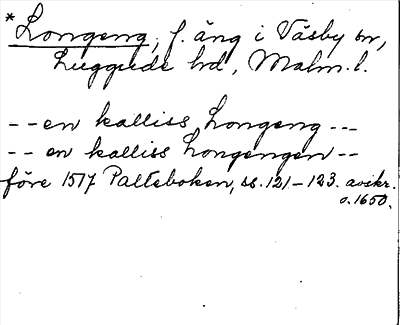 *Longeng, f. äng i Väsby sn,
Luggude hd, Malm. l.
-- en kalliss Longeng ---
-- en kalliss Longengen --
före 1517 Palteboken, ss. 121-123. avskr.
o. 1650.